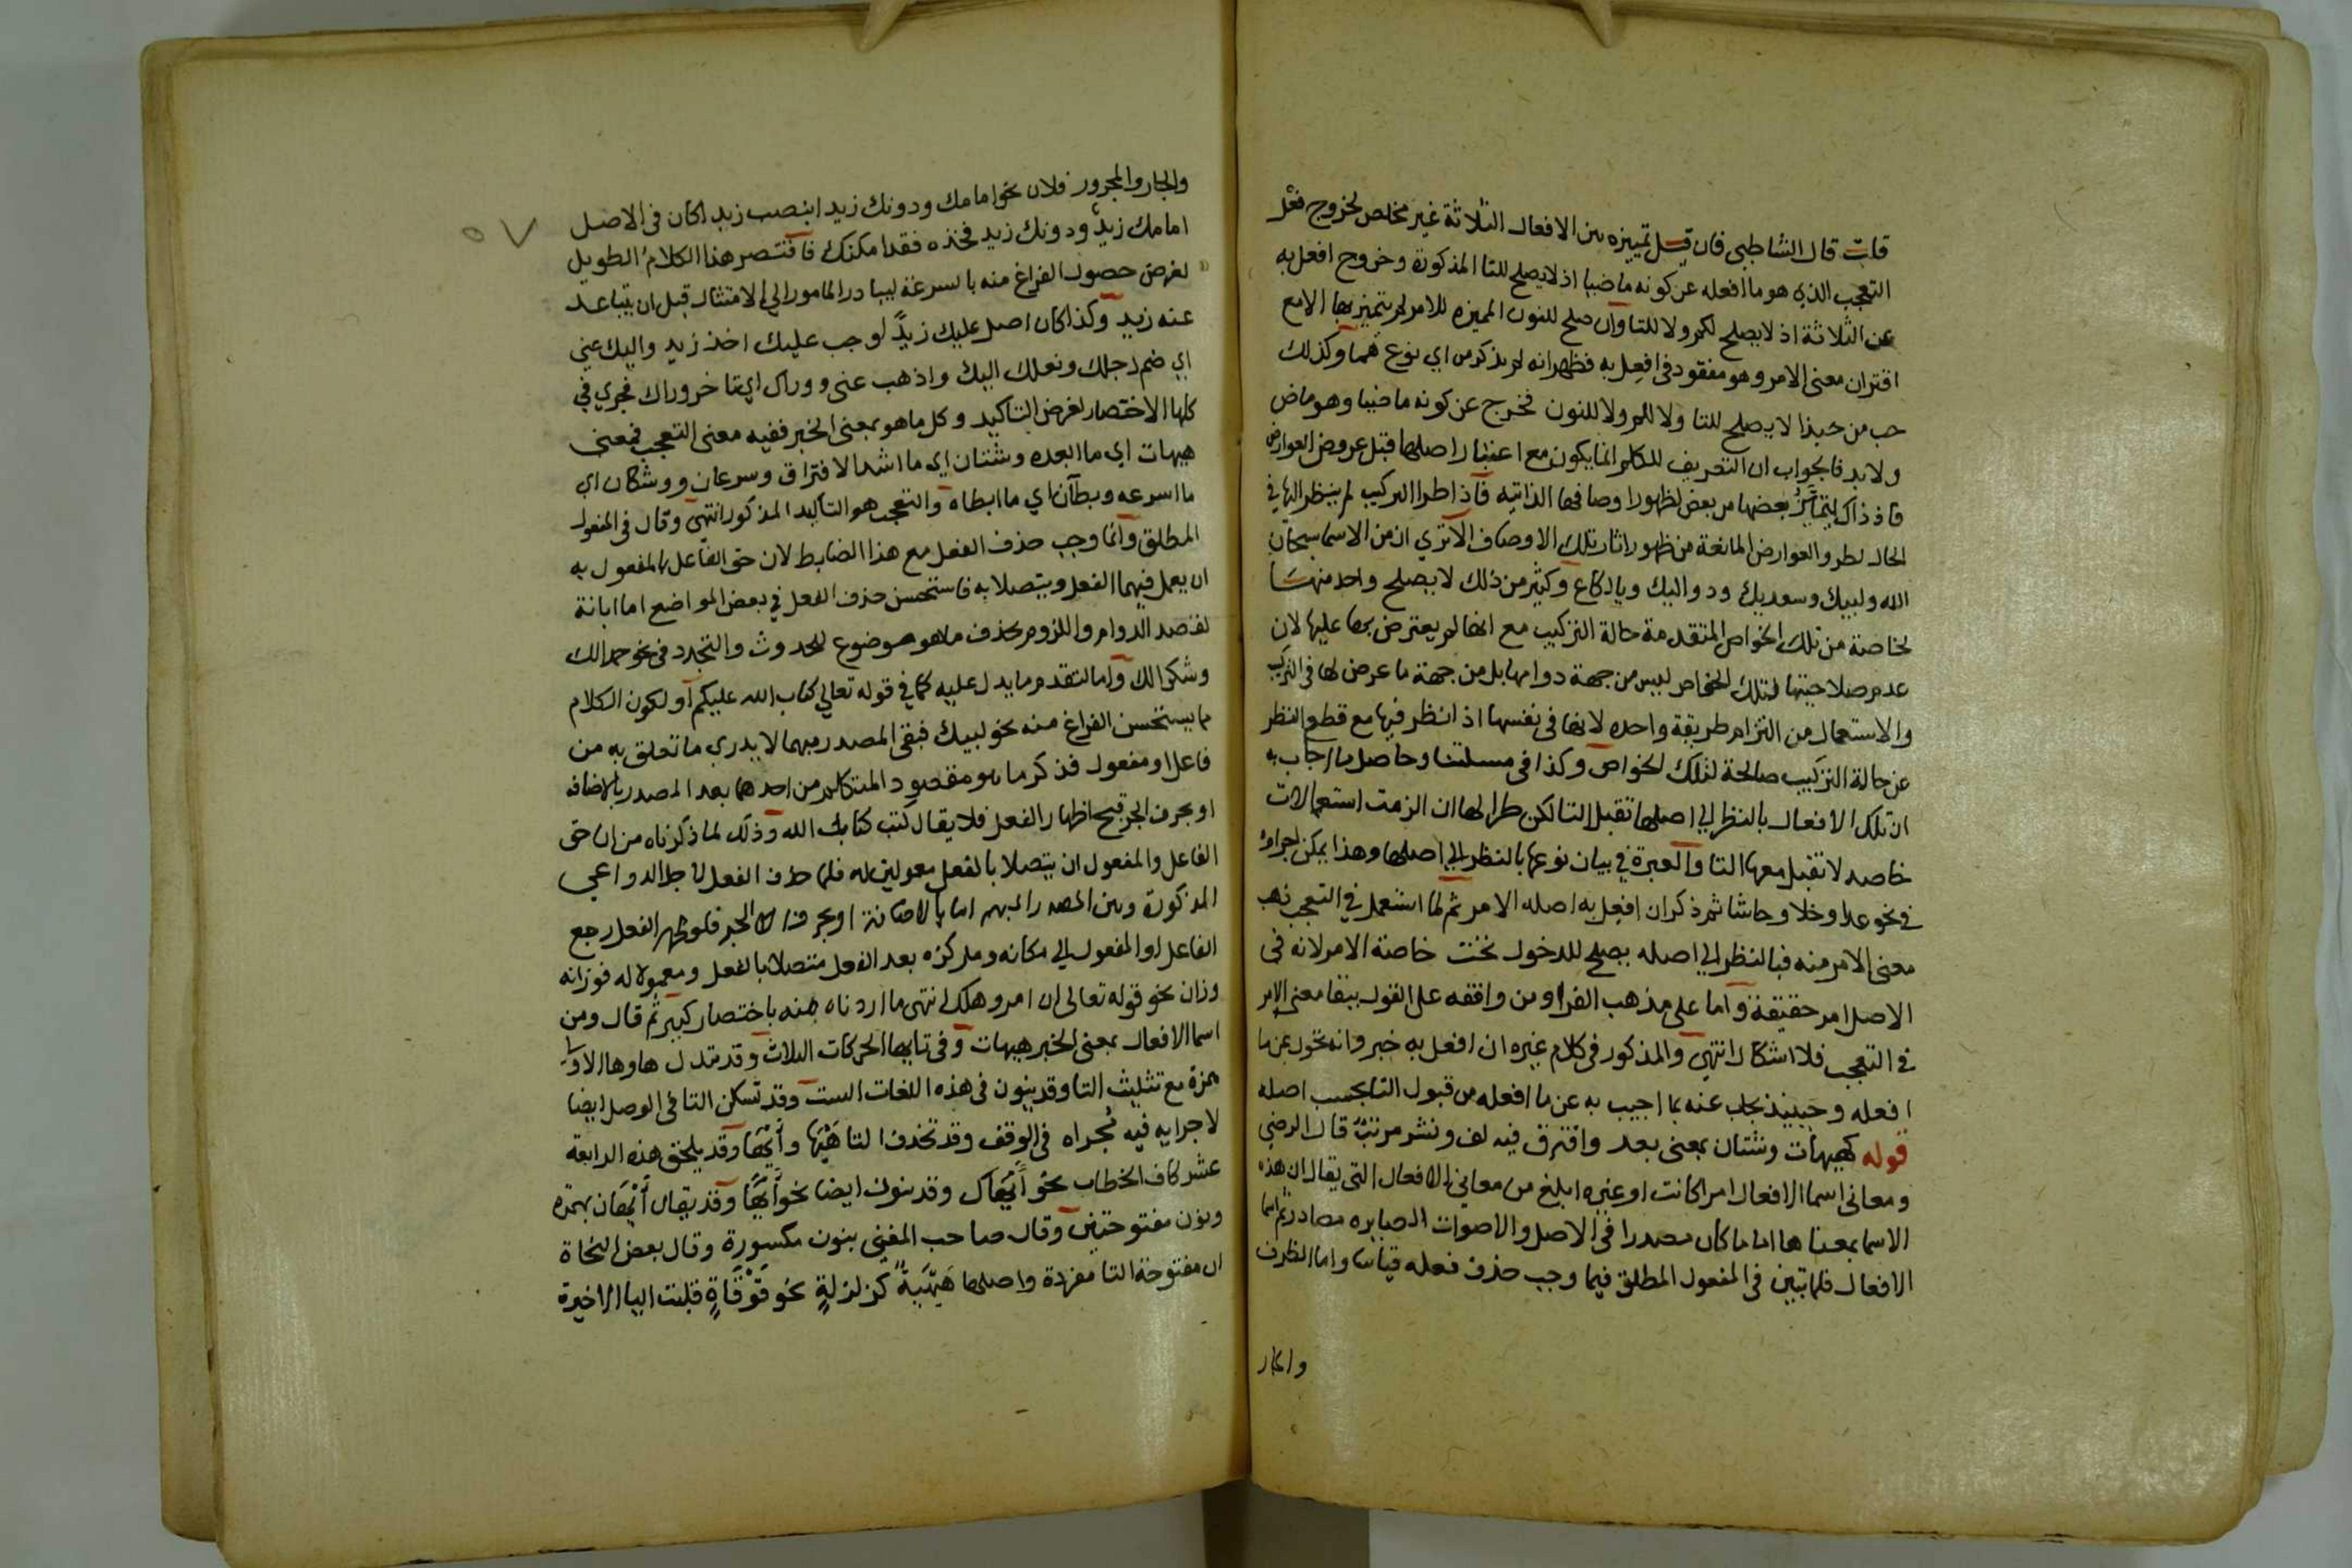 قلت قال الشاطبي فان قيل تمييزه بين الافعال الثلاثة غير مخلص لخروج فعل
التعجب الذي هو ما افعله عن كونه ماضيا اذ لا يصلح للتا المذكورة وخروج افعل به
عن الثلاثة اذ لا يصلح لكم ولا للتا وان صلح للنون المميزه للامر لم يتميز بها الا مع
اقتران معنى الامر وهو مفقود في افعل به فظهر انه لم يذكر من اي نوع هما وكذلك
حب من حبذا لا يصلح للتا ولا للم ولا للنون فخرج عن كونه ماضيا وهو ماض
ولا بد فالجواب ان التعريف للكلم انما يكون مع اعتبار اصلها قبل عروض العوارض
فاذ ذاك يتمايز بعضها من بعض لظهور اوصافها الذاتيه فاذا طرا التركيب لم ينظر اليها في
الحال لطرو العوارض المانعة من ظهور اثار تلك الاوصاف الا تري ان من الاسما سبحان
الله ولبيك وسعديك ودواليك ويا لكاع وكثير من ذلك لا يصلح واحد منها
لخاصة من تلك الخواص المتقدمة حالة التركيب مع انها لم يعترض بها عليها لان
عدم صلاحيتها لتلك الخواص ليس من جهة دوامها بل من جهة ما عرض لها في التركيب
والاستعمال من التزام طريقة واحده لانها في نفسها اذا نظر فيها مع قطع النظر
عن حالة التركيب صالحة لتلك الخواص وكذا في مسلتنا وحاصل ما اجاب به
ان تلك الافعال بالنظر الي اصلها تقبل التا لكن طرا لها ان الزمت استعمالات
خاصه لا تقبل معها التا والعبرة في بيان نوعها بالنظر الي اصلها وهذا يمكن اجراؤه
في نحو عدا وخلا وحاشا ثم ذكر ان افعل به اصله الامر ثم لما استعمل في التعجب ذهب
معنى الامر منه فبالنظر الي اصله يصلح للدخول تحت خاصة الامر لانه في
الاصل امر حقيقة واما على مذهب الفرا ومن وافقه على القول ببقا معنى الامر
في التعجب فلا اشكال انتهي والمذكور في كلام غيره ان افعل به خبر وانه تحول عن ما
افعله وحينيذ يجاب عنه بما اجيب به عن ما افعله من قبول التا بحسب اصله
قوله كهيهات وشتان بمعنى بعد وافترق فيه لف ونشر مرتب قال الرضي
ومعاني اسما الافعال امرا كانت او غيره ابلغ من معاني الافعال التي يقال ان هذه
الاسما بمعناها اما ما كان مصدرا في الاصل والاصوات الصايره مصادر ثم اسما
الافعال فلما تبين في المفعول المطلق فيما وجب حذف فعله قياسا واما الظرف
والجار
٥٧
والجار والمجرور فلان نحو امامك ودونك زيدا بنصب زيد كان في الاصل
امامك زيد ودونك زيد فخذه فقد امكنك فاقتصر هذا الكلام الطويل
لغرض حصول الفراغ منه بالسرعة ليبادر المامور الي الامتثال قبل ان يتباعد
عنه زيد وكذا كان اصل عليك زيدا وجب عليك اخذ زيد واليك عني
اي ضم رحلك وثقلك اليك واذهب عني ووراك اي تاخر وراك فجري في
كلها الاختصار لغرض التاكيد وكل ما هو بمعنى الخبر ففيه معنى التعجب فمعنى
هيهات اي ما ابعده وشتان اي ما اشد الافتراق وسرعان ووشكان اي
ما اسرعه وبطآن اي ما ابطاه والتعجب هو التاكيد المذكور انتهي وقال في المفعول
المطلق وانما وجب حذف الفعل مع هذا الضابط لان حق الفاعل والمفعول به
ان يعمل فيهما الفعل ويتصلا به فاستحسن حذف الفعل في بعض المواضع اما ابانة
لقصد الدوام واللزوم بحذف ما هو موضوع للحدوث والتجدد في نحو حمدا لك
وشكرا لك واما لتقدم ما يدل عليه كما في قوله تعالي كتاب الله عليكم او لكون الكلام
مما يستحسن الفراغ منه نحو لبيك فبقي المصدر مبهما لا يدري ما تعلق به من
فاعل او مفعول فذكر ما هو مقصود المتكلم من احدهما بعد المصدر بالاضافه
او بحرف الجر قبح اظهار الفعل فلا يقال كتب كتاب الله وذلك لما ذكرناه من ان حق
الفاعل والمفعول ان يتصلا بالفعل معمولين له فلما حذف الفعل لاجل الدواعي
المذكورة وبين المصدر المبهم اما بالاضافة او بحرف الجر فلو ظهر الفعل رجع
الفاعل او المفعول الي مكانه ومركزه بعد الفعل متصلا بالفعل ومعمولا له فوزانه
وزان نحو قوله تعالى ان امرو هلك انتهى ما اردناه منه باختصار كبير ثم قال ومن
اسما الافعال بمعنى الخبر هيهات وفي تايها الحركات الثلاث وقد تبدل هاوها الاولي
همزة مع تثليث التا وقد ينون في هذه اللغات الست وقد تسكن التا في الوصل ايضا
لاجرايه فيه مجراه في الوقف وقد تحذف التا هيها وأيها وقد يلحق هذه الرابعة
عشر كاف الخطاب نحو أيهاك وقد ينون ايضا نحو أيها وقد يقال أيهان بهمزه
ونون مفتوحتين وقال صاحب المغني بنون مكسورة وقال بعض النحاة
ان مفتوحة التا مفردة واصلها هيهية كزلزلة نحو قوقاة قلبت اليا الاخيرة